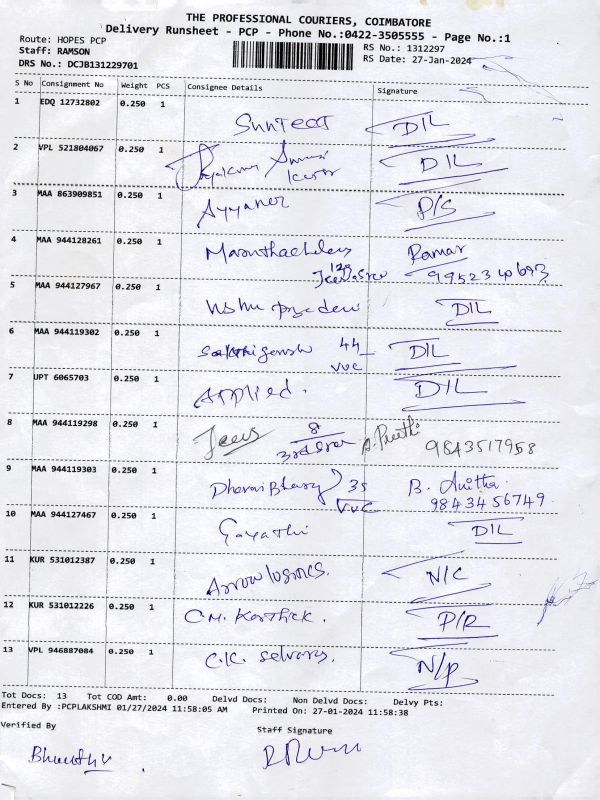 THE PROFESSIONAL COURIERS, COIMBATORE
Delivery Runsheet - PCP - Phone No.:0422-3505555 - Page No.:1
Route: HOPES PCP
RS No.: 1312297
Staff: RAMSON
RS Date: 27-Jan-2024
DRS No.: DCJB131229701
S No Consignment No Weight PCS Consignee Details Signature
1 EDQ 12732802 0.250 1
Suntect D/L
2 VPL 521804067 0.250 1
D/L
3 MAA 863909851 0.250 1
Ayyaner P/S
4 MAA 944128261 0.250 1
Ramar
9952340693
5 MAA 944127967 0.250 1
D/L
6 MAA 944119302 0.250 1
44 D/L
VVC
7 UPT 6065703 0.250 1
Applied. D/L
8 MAA 944119298 0.250 1
Jees 8 A. Preethi 9843517958
3rd
9 MAA 944119303 0.250 1
35 B. Anitha
VVC 9843456749
10 MAA 944127467 0.250 1
Gayathri D/L
11 KUR 531012387 0.250 1
N/C
12 KUR 531012226 0.250 1
C.M. Karthick. P/R
13 VPL 946887084 0.250 1
C.K. Selvaraj. N/P
Tot Docs: 13 Tot COD Amt: 0.00 Delvd Docs: Non Delvd Docs: Delvy Pts:
Entered By :PCPLAKSHMI 01/27/2024 11:58:05 AM Printed On: 27-01-2024 11:58:38
Verified By
Staff Signature